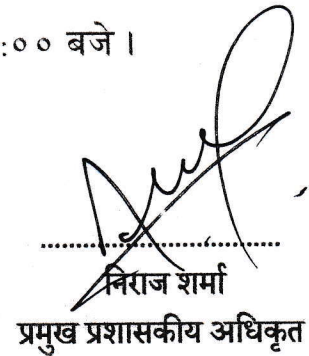 :०० बजे ।
निराज शर्मा
प्रमुख प्रशासकीय अधिकृत